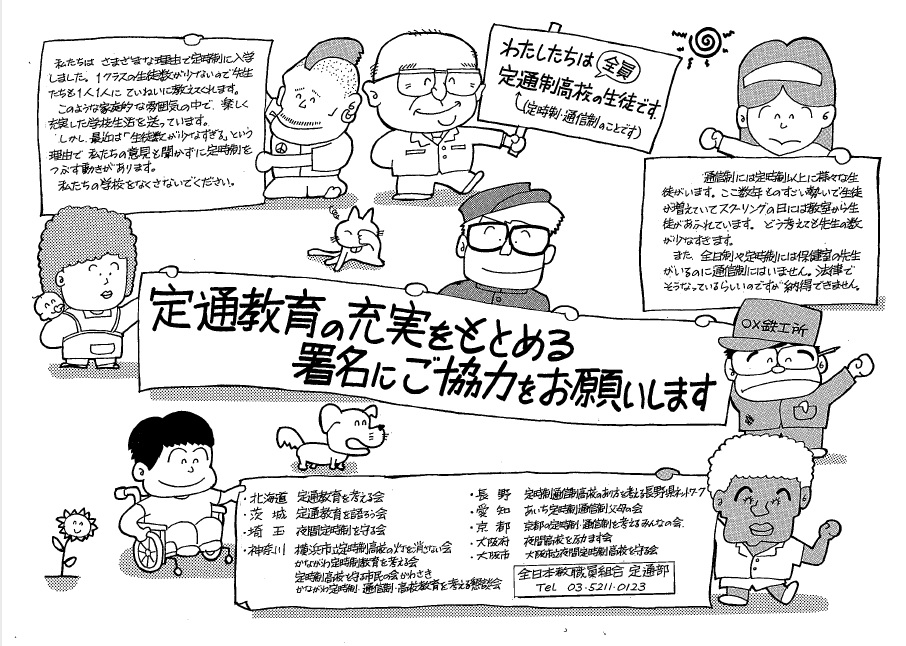 私たちは さまざまな理由で定時制に入学
しました。1クラスの生徒数が少ないので先生
たちも1人1人に ていねいに教えてくれます。
このような家庭的な雰囲気の中で、楽しく
充実した学校生活を送っています。
しかし、最近は「生徒数が少なすぎる」という
理由で 私たちの意見も聞かずに定時制を
つぶす動きがあります。
私たちの学校をなくさないでください。
わたしたちは 全員
定通制高校の生徒です.
(定時制・通信制のことです)
通信制には定時制以上に様々な生
徒がいます。ここ数年ものすごい勢いで生徒
が増えていてスクーリングの日には教室から生
徒があふれています。どう考えても先生の数
が少なすぎます。
また、全日制や定時制には保健室の先生
がいるのに通信制にはいません。法律で
そうなっているらしいのですが納得できません。
定通教育の充実をもとめる
署名にご協力をお願いします
○×鉄工所
・北海道 定通教育を考える会
・茨城 定通教育を語ろう会
・埼玉 夜間定時制を守る会
・神奈川 横浜市立定時制高校の灯を消さない会
かながわ定時制教育を考える会
定時制高校を守る市民の会かわさき
かながわ定時制・通信制・高校教育を考える懇談会
・長野 定時制通信制高校のあり方を考える長野県ネットワーク
・愛知 あいち定時制通信制父母の会
・京都 京都の定時制・通信制を考えるみんなの会
・大阪府 夜間高校を励ます会
・大阪市 大阪市立夜間定時制高校を守る会
全日本教職員組合 定通部
Tel 03・5211・0123